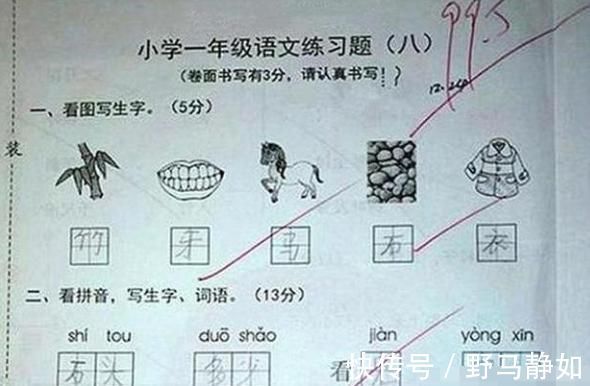 小学一年级语文练习题（八）
99.5
（卷面书写有3分，请认真书写！？）
装
一、看图写生字。（5分）
竹 牙 马 石 衣
二、看拼音，写生字、词语。（13分）
shí tou duō shǎo jiàn yòng xīn
石头 多少 看
快传号 / 野马静如